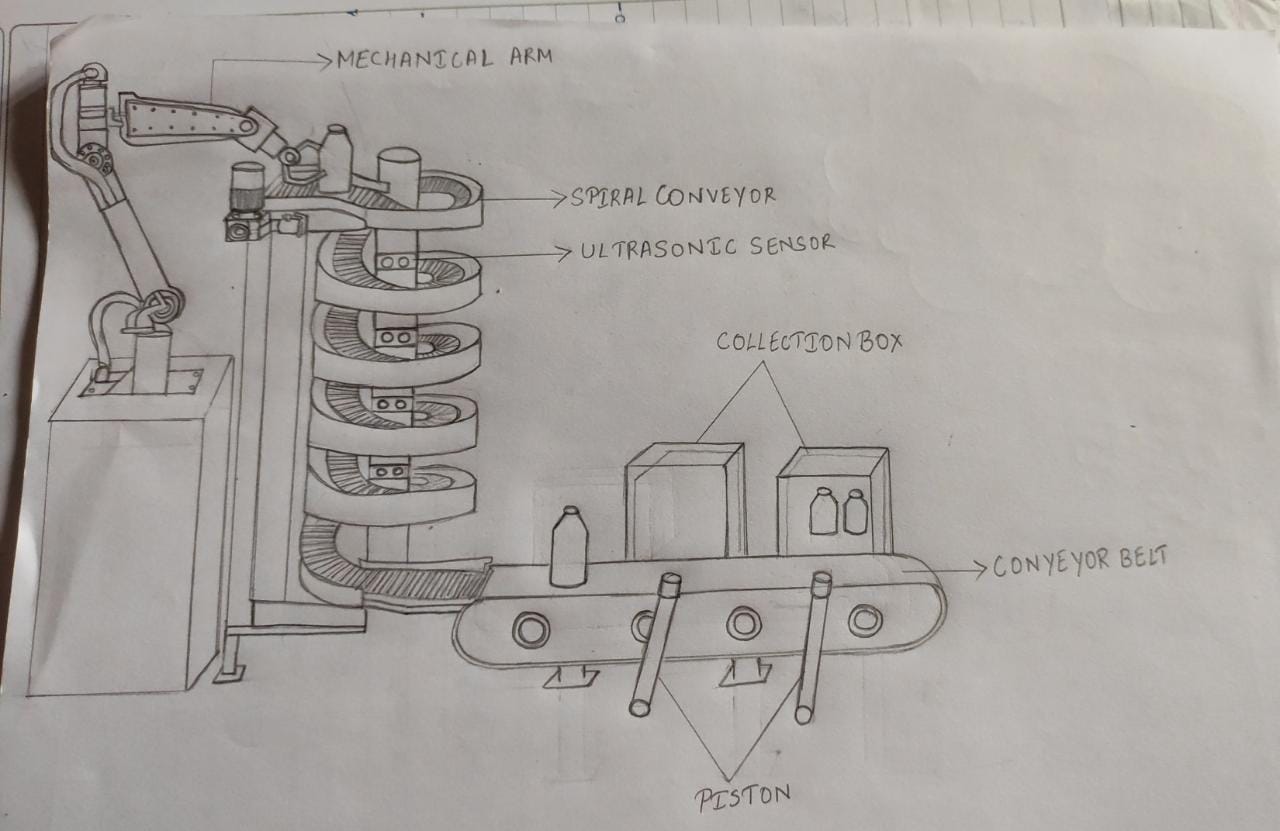 MECHANICAL ARM
SPIRAL CONVEYOR
ULTRASONIC SENSOR
COLLECTION BOX
CONYEYOR BELT
PISTON